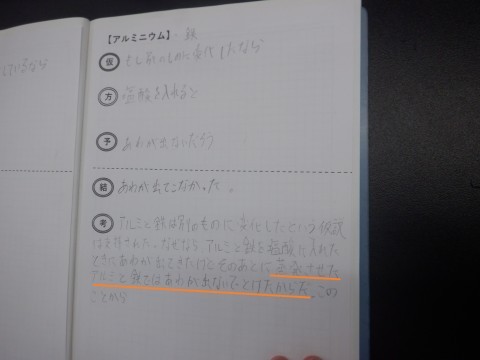 ているなら
【アルミニウム】 鉄
仮 もし別のものに変化したなら
方 塩酸を入れると
予 あわが出ないだろう
結 あわが出てこなかった。
考 アルミと鉄は別のものに変化したという仮説
は支持された。なぜなら、アルミと鉄を塩酸に入れた
ときにあわが出てきたけどそのあとに蒸発させた
アルミと鉄ではあわが出ないでとけたからだ。この
ことから